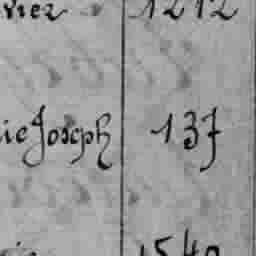 vrez 1212
ie Joseph 137
1540